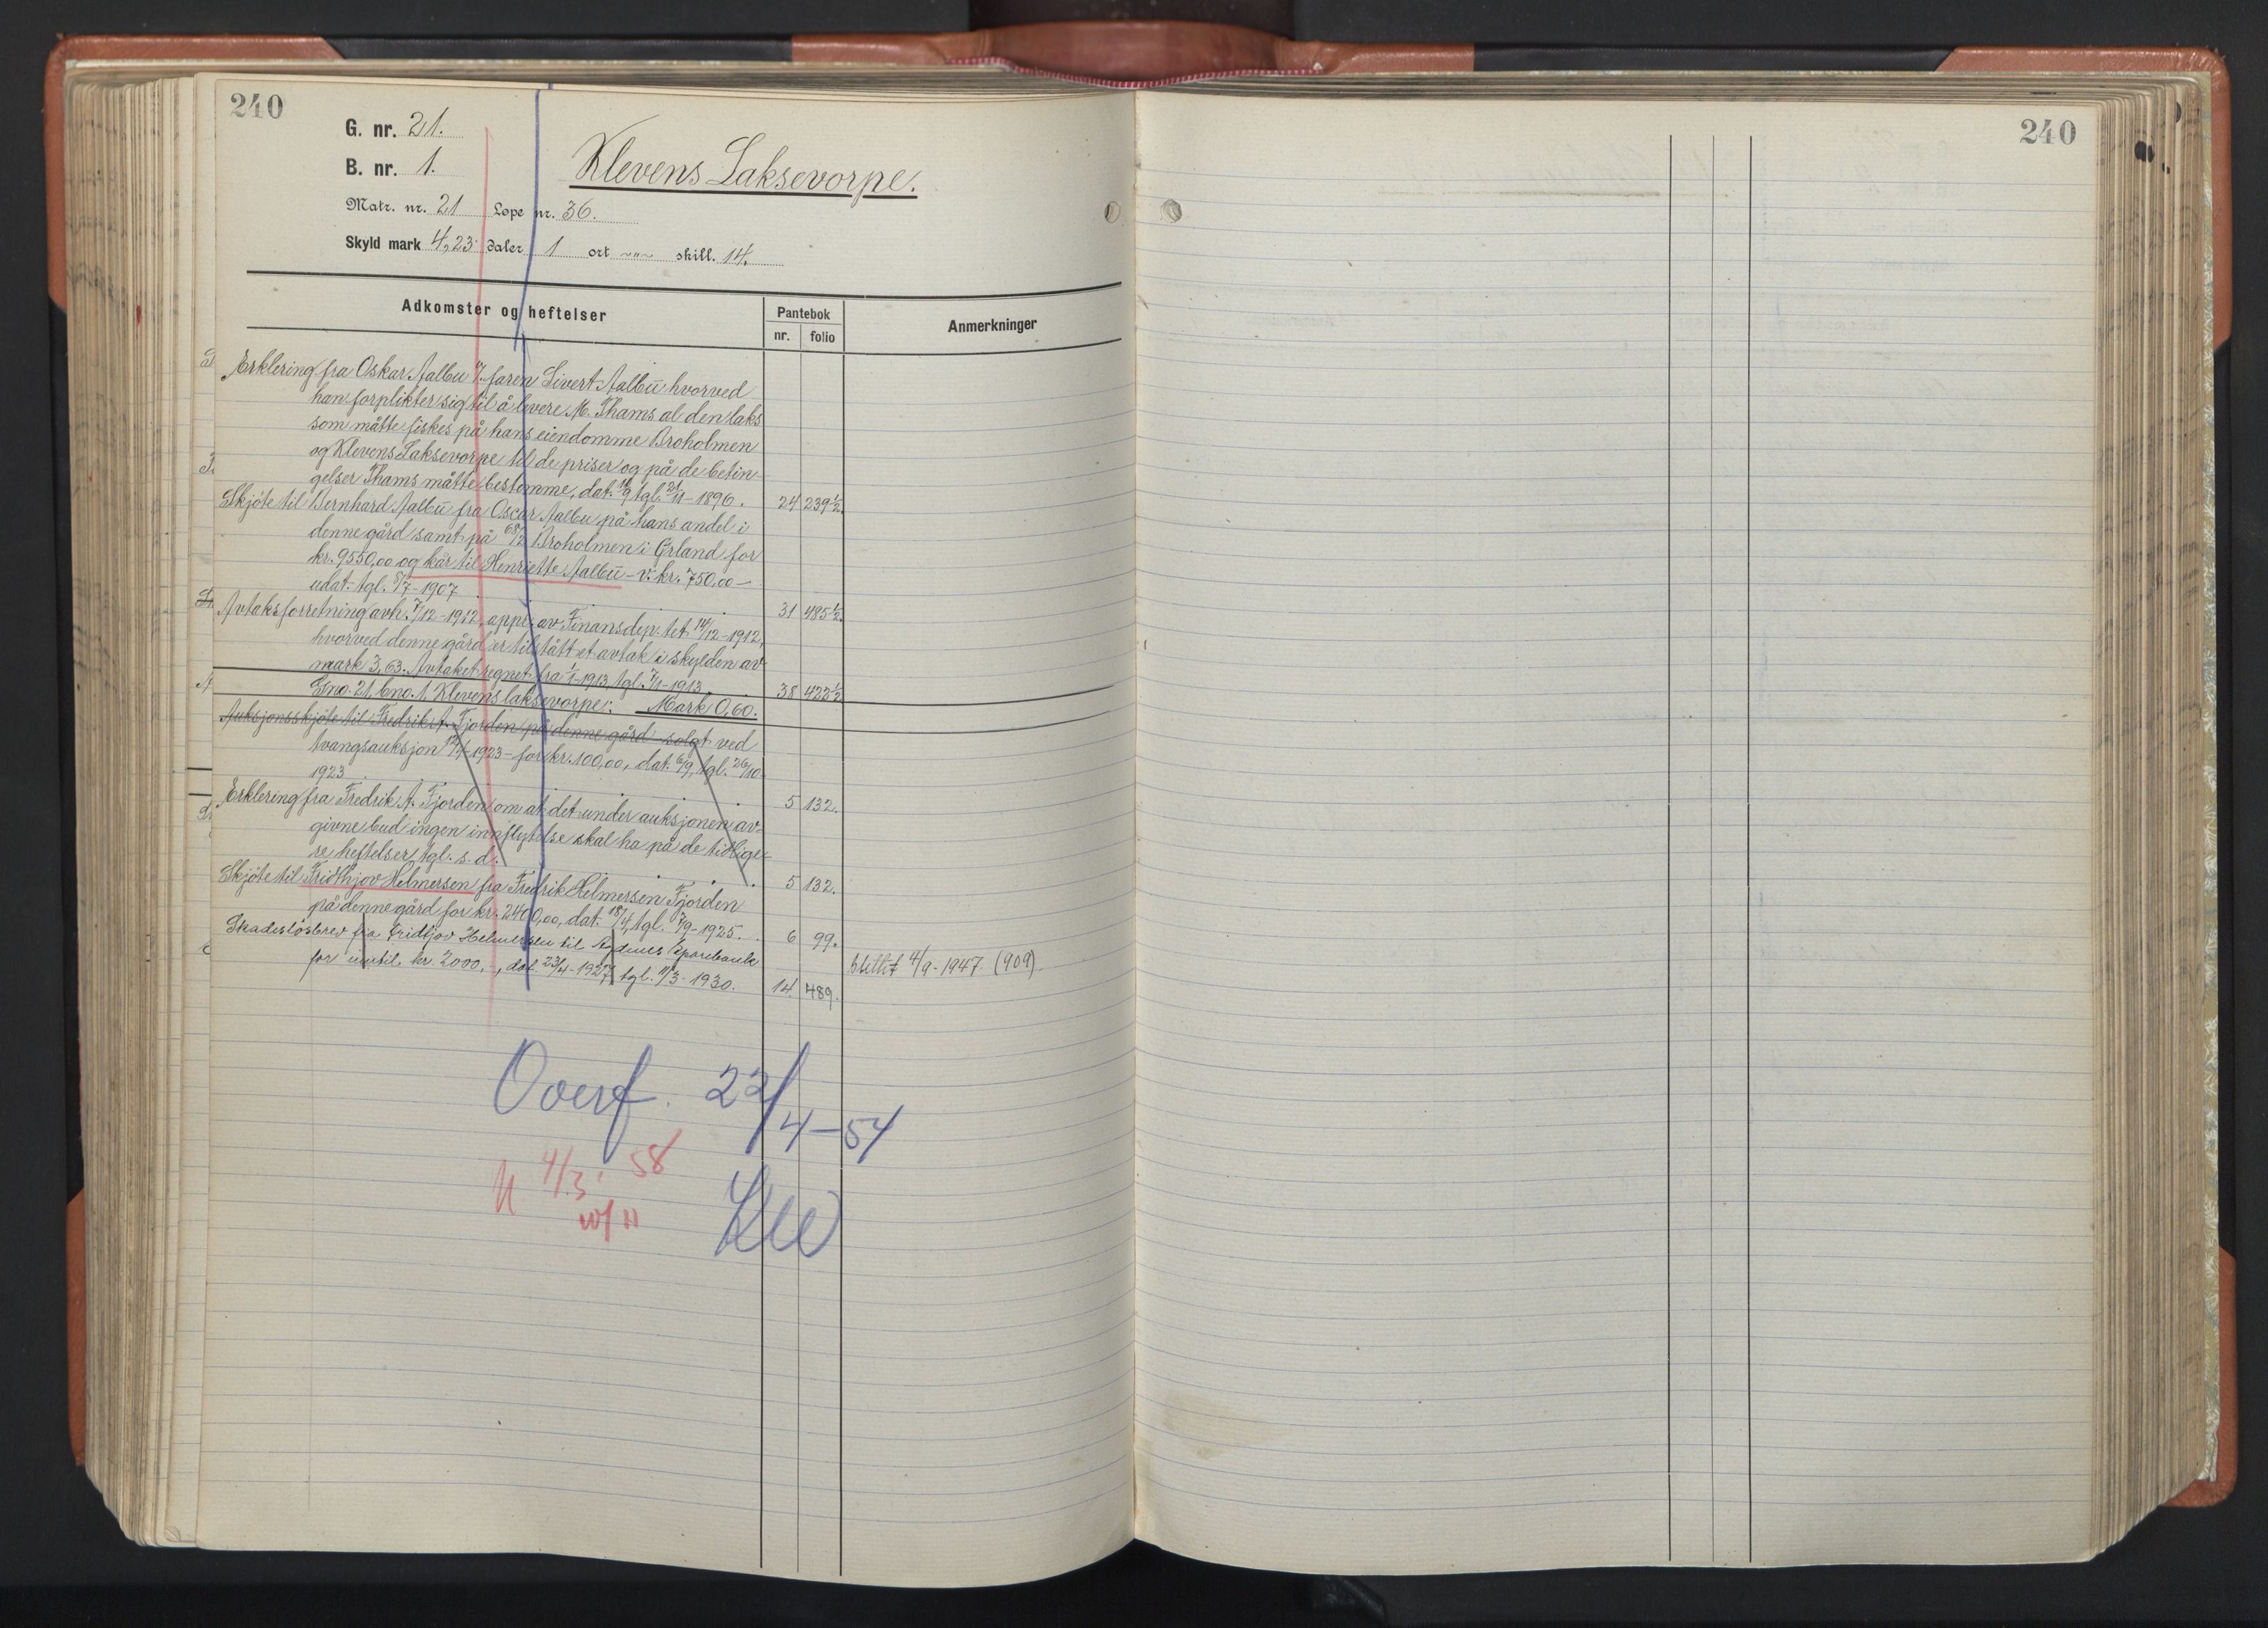 240
G. nr. 21.
B. nr. 1.
Klevens Laksevorpe.
Matr. nr. 21 Løpe nr. 36.
Skyld mark 4,23 daler 1 ort -"- skill. 14.
Adkomster og heftelser
Pantebok
nr. folio
Anmerkninger
Erklering fra Oskar Aalbu faren Sivert Aalbu hvorved
han forplikter sig til å levere M. Thams al den laks
som måtte fiskes på hans eiendomme Broholmen
og Klevens Laksevorpe til de priser og på de betin-
gelser Thams måtte bestemme, dat. 11/9 tgl. 21/11-1896. 24 239½.
Skjöte til Bernhard Aalbu fra Oscar Aalbu på hans andel i
denne gård samt på 68/2 Broholmen i Örland for
kr. 9550,00 og kår til Henriette Aalbu - v. kr. 750,00 -
udat. tgl. 8/7-1907 31 485½.
Avtaksforretning avh. 7/12-1912, appl. av Finansdep:tet 14/12-1912,
hvorved denne gård er tilstått et avtak i skylden av
mark 3,63. Avtaket regnet fra 1/1-1913, tgl. 7/1-1913 38 422½
Gno. 21, bno. 1 Klevens laksevorpe: Mark 0,60.
Auksjonsskjöte til Fredrik A. Fjorden på denne gård solgt ved
tvangsauksjon 1923 - for kr. 100,00, dat. 6/9, tgl. 26/10
1923 5 132.
Erklering fra Fredrik A. Fjorden om at det under auksjonen av-
givne bud ingen innflytelse skal ha på de tidlige-
re heftelser, tgl. s. d. 5 132.
Skjöte til Fridthjov Helmersen fra Fredrik Helmersen Fjorden
på denne gård for kr. 2400,00, dat. 18/4, tgl. 7/9-1925. 6 99.
Skadeslösbrev fra Fridtjov Helmersen til Agdenes Sparebank
for inntil kr. 2000,-, dat. 23/4-1927, tgl. 11/3-1930. 14. 489.
Slettet 4/9-1947 (909)
Overf. 22/4-54
4/3' 58
240